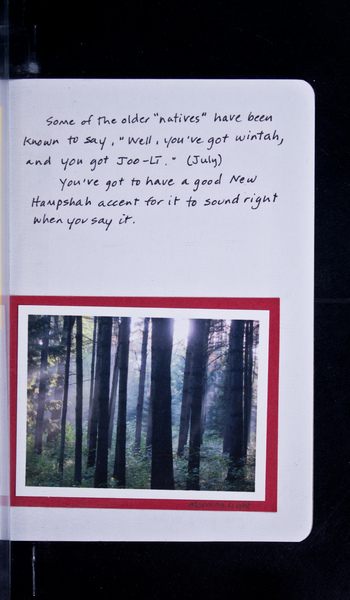 Some of the older "natives" have been
known to say, "Well, you've got wintah,
and you got Joo-LI." (July)
You've got to have a good New
Hampshah accent for it to sound right
when you say it.